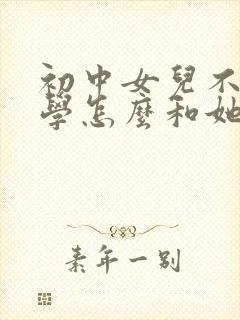 初中女兒不
學怎麼和她
素年一别